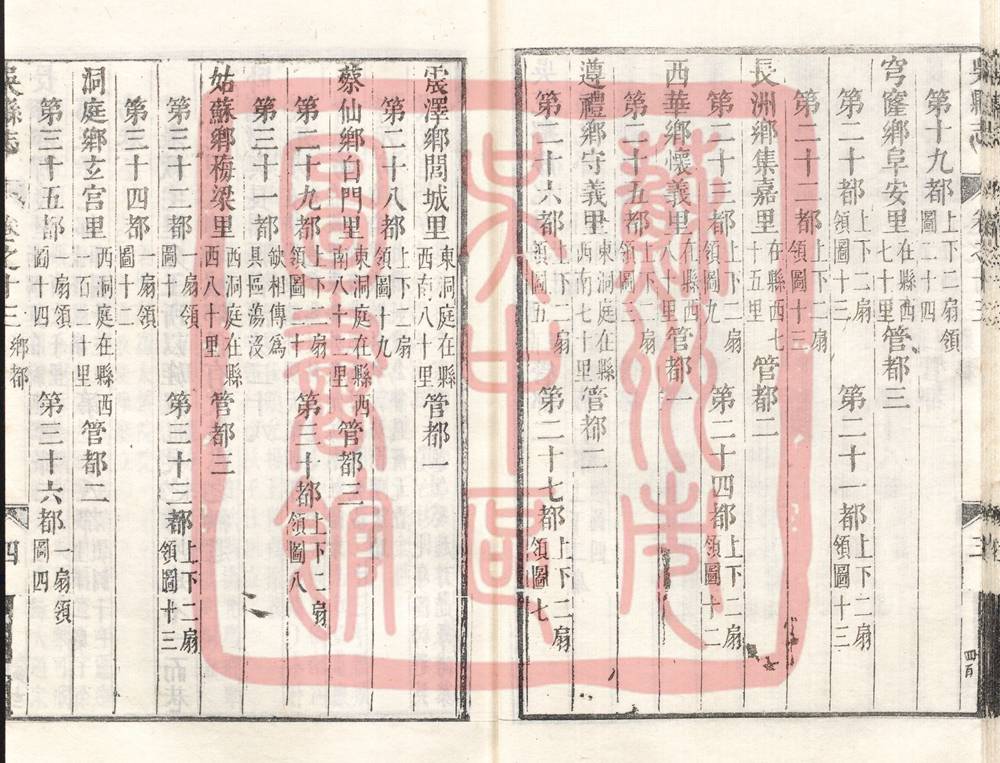 吳縣志 卷之十三 三
第十九都 上下二扇領圖二十四
穹窿鄉阜安里 在縣西七十里 管都三
第二十都 上下二扇領圖十三 第二十一都 上下二扇領圖十三
第二十二都 上下二扇領圖十三
長洲鄉集嘉里 在縣西七十五里 管都二
第二十三都 上下二扇領圖九 第二十四都 上下二扇領圖十二
西華鄉懷義里 在縣西八十里 管都一
第二十五都 上下二扇領圖三
遵禮鄉守義里 東洞庭在縣西南七十里 管都二
第二十六都 上下二扇領圖五 第二十七都 上下二扇領圖七
震澤鄉閭城里 東洞庭在縣西南八十里 管都一
第二十八都 上下二扇領圖十九
蔡仙鄉白門里 東洞庭在縣西南八十二里 管都三
第二十九都 上下二扇領圖二十 第三十都 上下二扇領圖八
第三十一都 缺相傳為具區蕩沒
姑蘇鄉梅梁里 西洞庭在縣西八十里 管都三
第三十二都 一扇領圖十 第三十三都 上下二扇領圖十三
第三十四都 一扇領圖十二
洞庭鄉玄宫里 西洞庭在縣西一百二十里 管都二
第三十五都 一扇領圖十四 第三十六都 一扇領圖四
吳縣志 卷之十三 鄉都 四
蘇州市
吳中區
圖書館